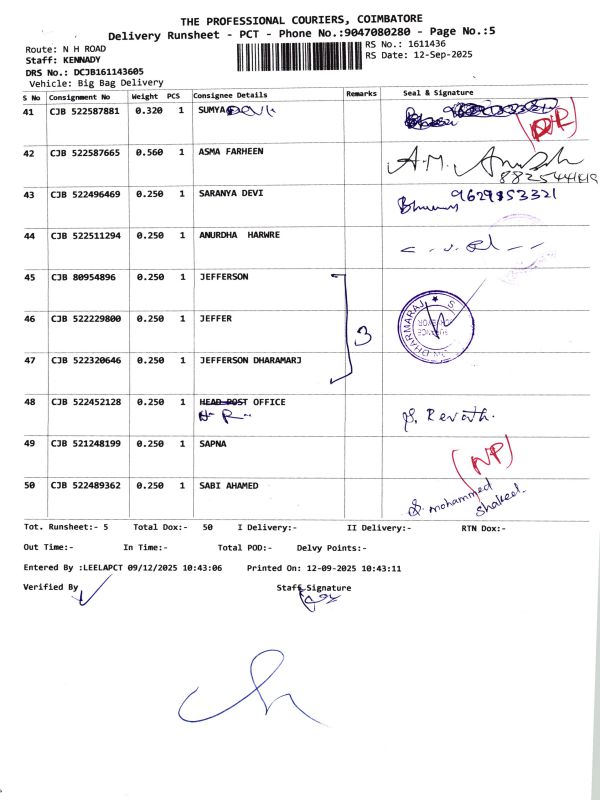 THE PROFESSIONAL COURIERS, COIMBATORE
Delivery Runsheet - PCT - Phone No.:9047080280 - Page No.:5
Route: N H ROAD
RS No.: 1611436
Staff: KENNADY
RS Date: 12-Sep-2025
DRS No.: DCJB161143605
Vehicle: Big Bag Delivery
S No Consignment No Weight PCS Consignee Details Remarks Seal & Signature
41 CJB 522587881 0.320 1 SUMYA
42 CJB 522587665 0.560 1 ASMA FARHEEN A.M.
43 CJB 522496469 0.250 1 SARANYA DEVI 9629853321
44 CJB 522511294 0.250 1 ANURDHA HARWRE
45 CJB 80954896 0.250 1 JEFFERSON
46 CJB 522229800 0.250 1 JEFFER 3 DHARMARAJ
47 CJB 522320646 0.250 1 JEFFERSON DHARAMARJ
48 CJB 522452128 0.250 1 HEAD POST OFFICE
S. Revath.
49 CJB 521248199 0.250 1 SAPNA (NP)
50 CJB 522489362 0.250 1 SABI AHAMED S. mohammed shakeel.
Tot. Runsheet:- 5 Total Dox:- 50 I Delivery:- II Delivery:- RTN Dox:-
Out Time:- In Time:- Total POD:- Delvy Points:-
Entered By :LEELAPCT 09/12/2025 10:43:06 Printed On: 12-09-2025 10:43:11
Verified By Staff Signature